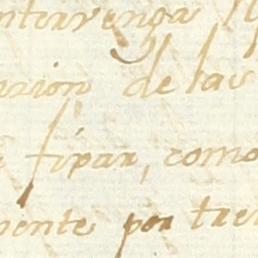 ntervenga
de las
fipar, como
mente por tre